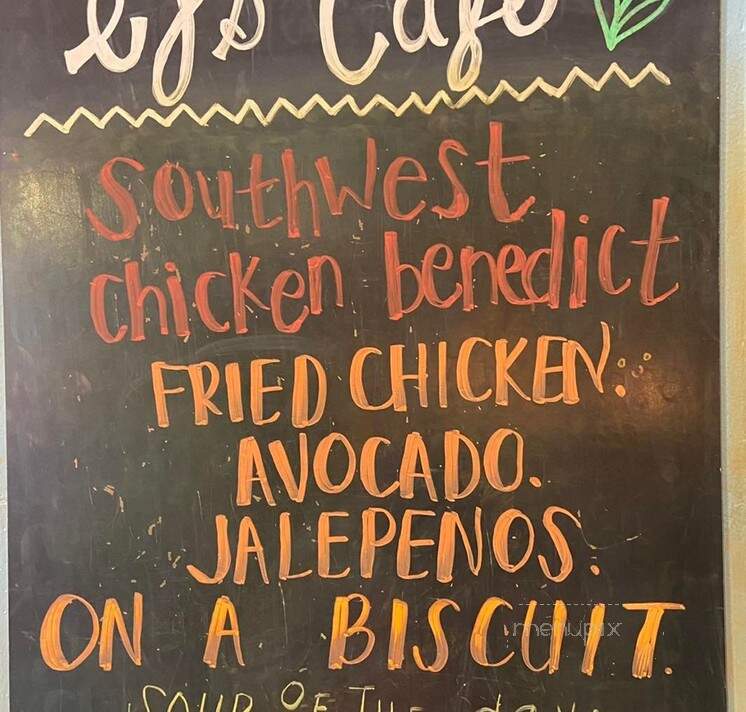 Cafe
Southwest
chicken benedict
FRIED CHICKEN.
AVOCADO.
JALEPENOS.
ON A BISCUIT.
menupix
SOUP OF THE day: